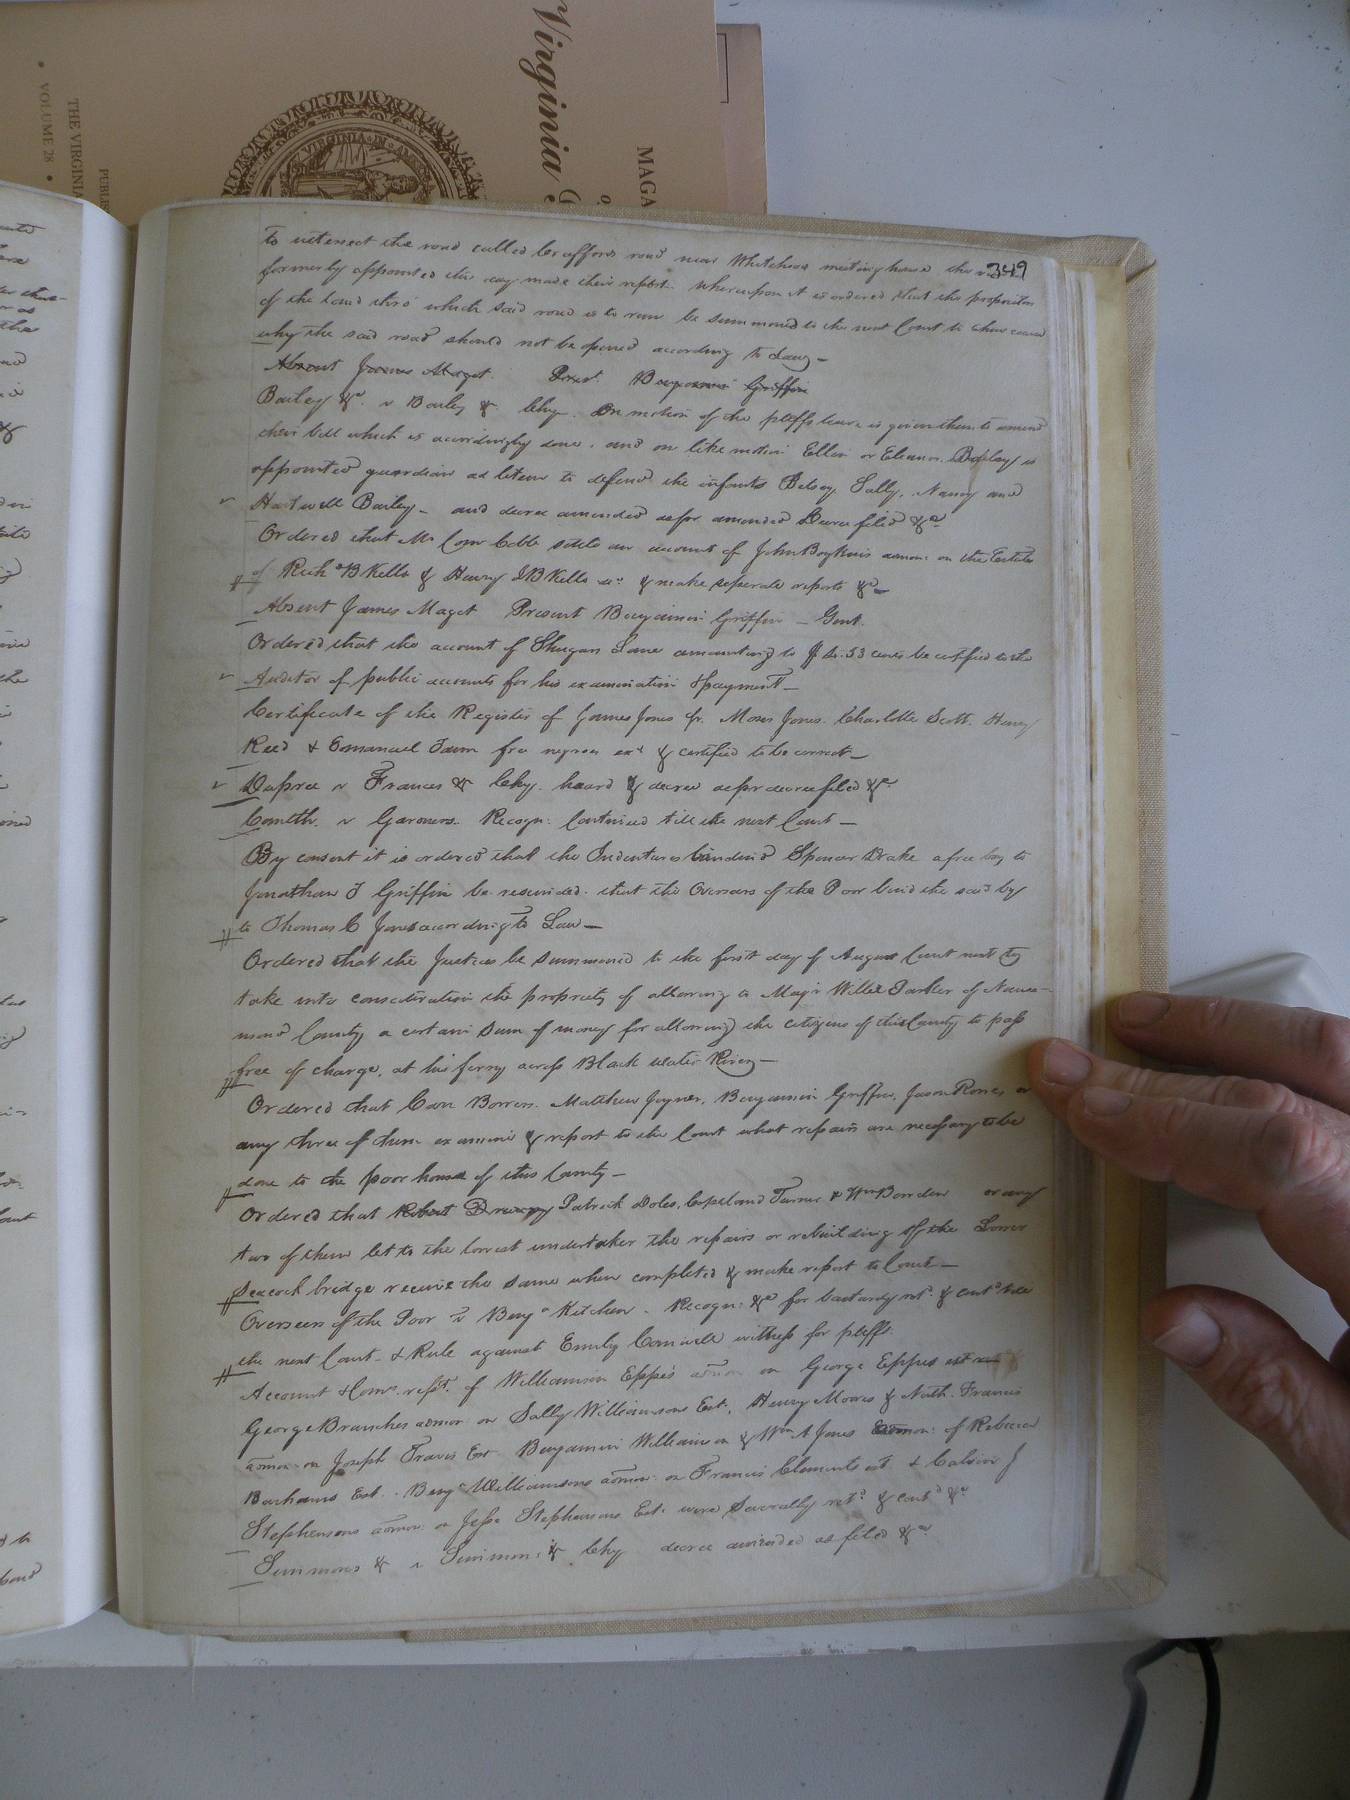 Virginia
MAGA
VOLUME 28
THE VIRGINIA
PUBLIS
VIRGINIA IN
349
To intersect the road called Craffords road near Whiteheads meeting house the
formerly appointed this day made their report. Whereupon it is ordered that the proprietors
of the land thro' which said road is to run be summoned to the next Court to shew cause
why the said road should not be opened according to Law
Absent James Maget. Prest. Benjamin Griffin
Bailey &c. v Bailey & Chy. On motion of the pltffs leave is given them to amend
their bill which is accordingly done, and on like motion Ellen or Eleanor Bailey is
appointed guardian ad litem to defend the infants Betsey, Sally, Nancy and
Hartwell Bailey - and decree amended as pr amended Decree filed &c
Ordered that Mr Cobb settle an account of John Boykins admor. on the Estates
of Rich'd B Kello & Henry J B Kello & make seperate reports &c
Absent James Maget Present Benjamin Griffin - Gent.
Ordered that the account of Lane amounting to 53 cents be certified to the
Auditor of public accounts for his examination & payment
Certificate of the Register of James Jones Jr. Moses Jones. Charlotte Scott. Henry
Reed & Emanuel free negroes exd & certified to be correct
Dupree v Frances & Chy. heard & decree as pr decree filed &c
Comlth. v Garners. Recogn: Continued till the next Court
By consent it is ordered that the Indentures binding Spencer Drake a free boy to
Jonathan J Griffin be rescinded. that the Overseers of the Poor bind the said boy
to Thomas C Jones according to Law
Ordered that the Justices be summoned to the first day of August Court next to
take into consideration the propriety of allowing to Majr Willis Parker of Nanse-
mond County a certain sum of money for allowing the citizens of this County to pass
free of charge, at his ferry across Black water River
Ordered that Carr Bowers. Matthew Joyner, Benjamin Griffin, Jason Rones or
any three of them examine & report to the Court what repairs are necessary to be
done to the poor house of this County
Ordered that Robert Drewry Patrick Doles, Copeland Turner & Wm Borden or any
two of them let to the lowest undertaker the repairs or rebuilding of the Lower
Seacock bridge receive the same when completed & make report to Court
Overseers of the Poor v Benj'n Kitchen. Recogn: &c for bastardy ret. & contd till
the next Court & Rule against Emily Cornwell witness for pltffs.
Account & Comr. rept. of Williamson Epps's admor on George Eppes est
George Branches admor on Sally Williamsons Est. Henry Moores & Nath. Francis
admor on Joseph Travis Est Benjamin Williamson & Wm A Jones admor: of Rebecca
Barhams Est. Benjn Williamsons admor: on Francis Clements est & Calvin J
Stephensons admor: on Jesse Stephensons Est. were severally retd & contd &c
Simmons & v Simmons & Chy decree as filed &c